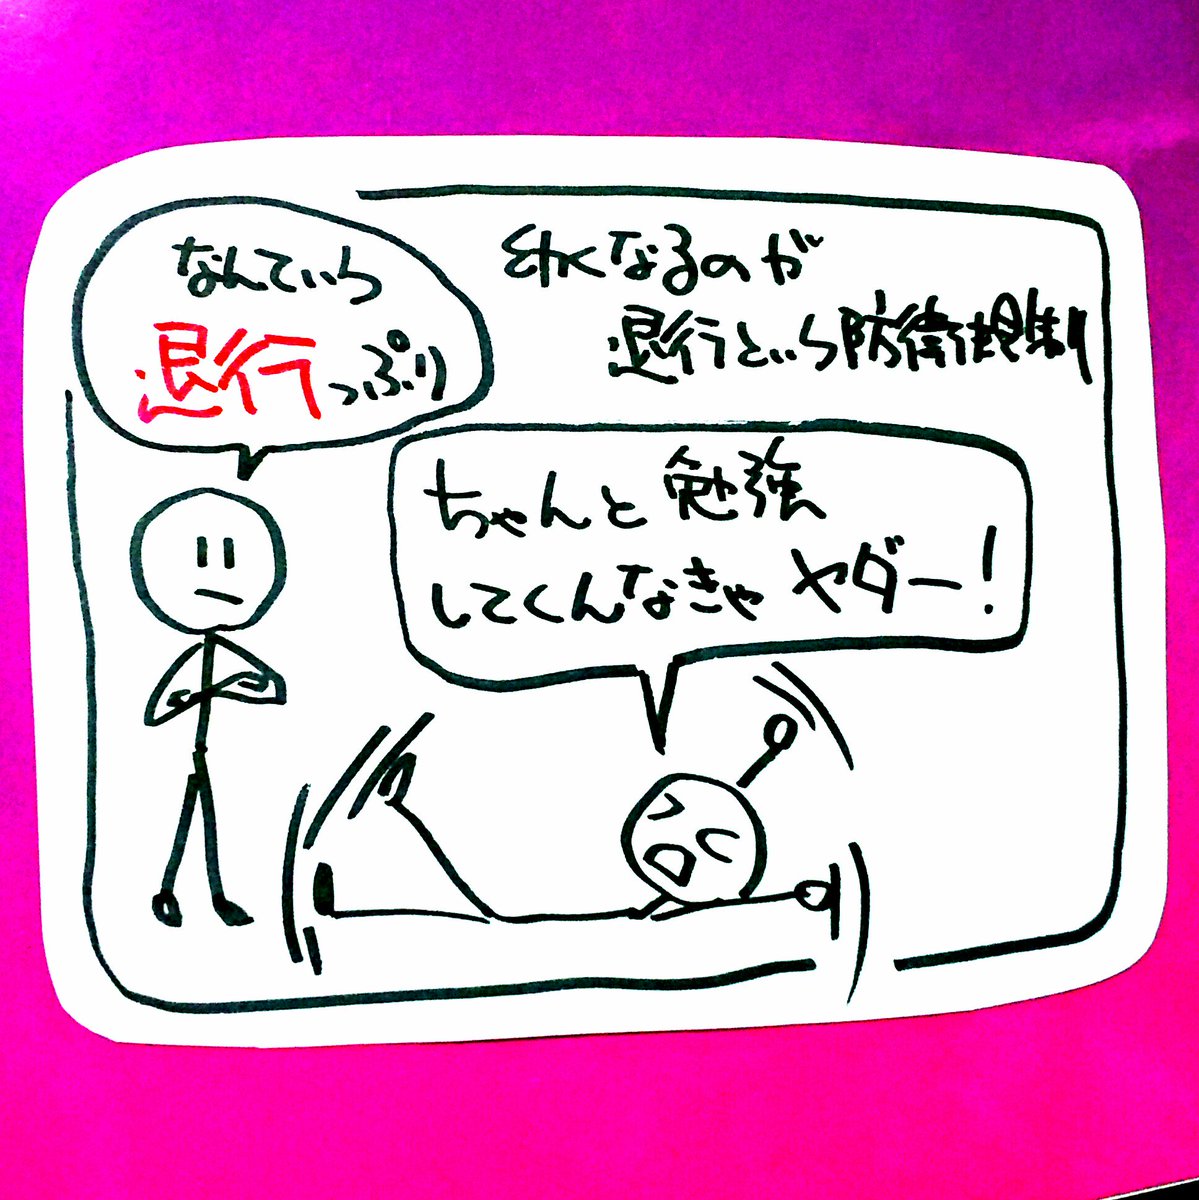 なんていう
退行っぷり
幼くなるのが
退行という防衛規制
ちゃんと勉強
してくんなきゃ ヤダー!